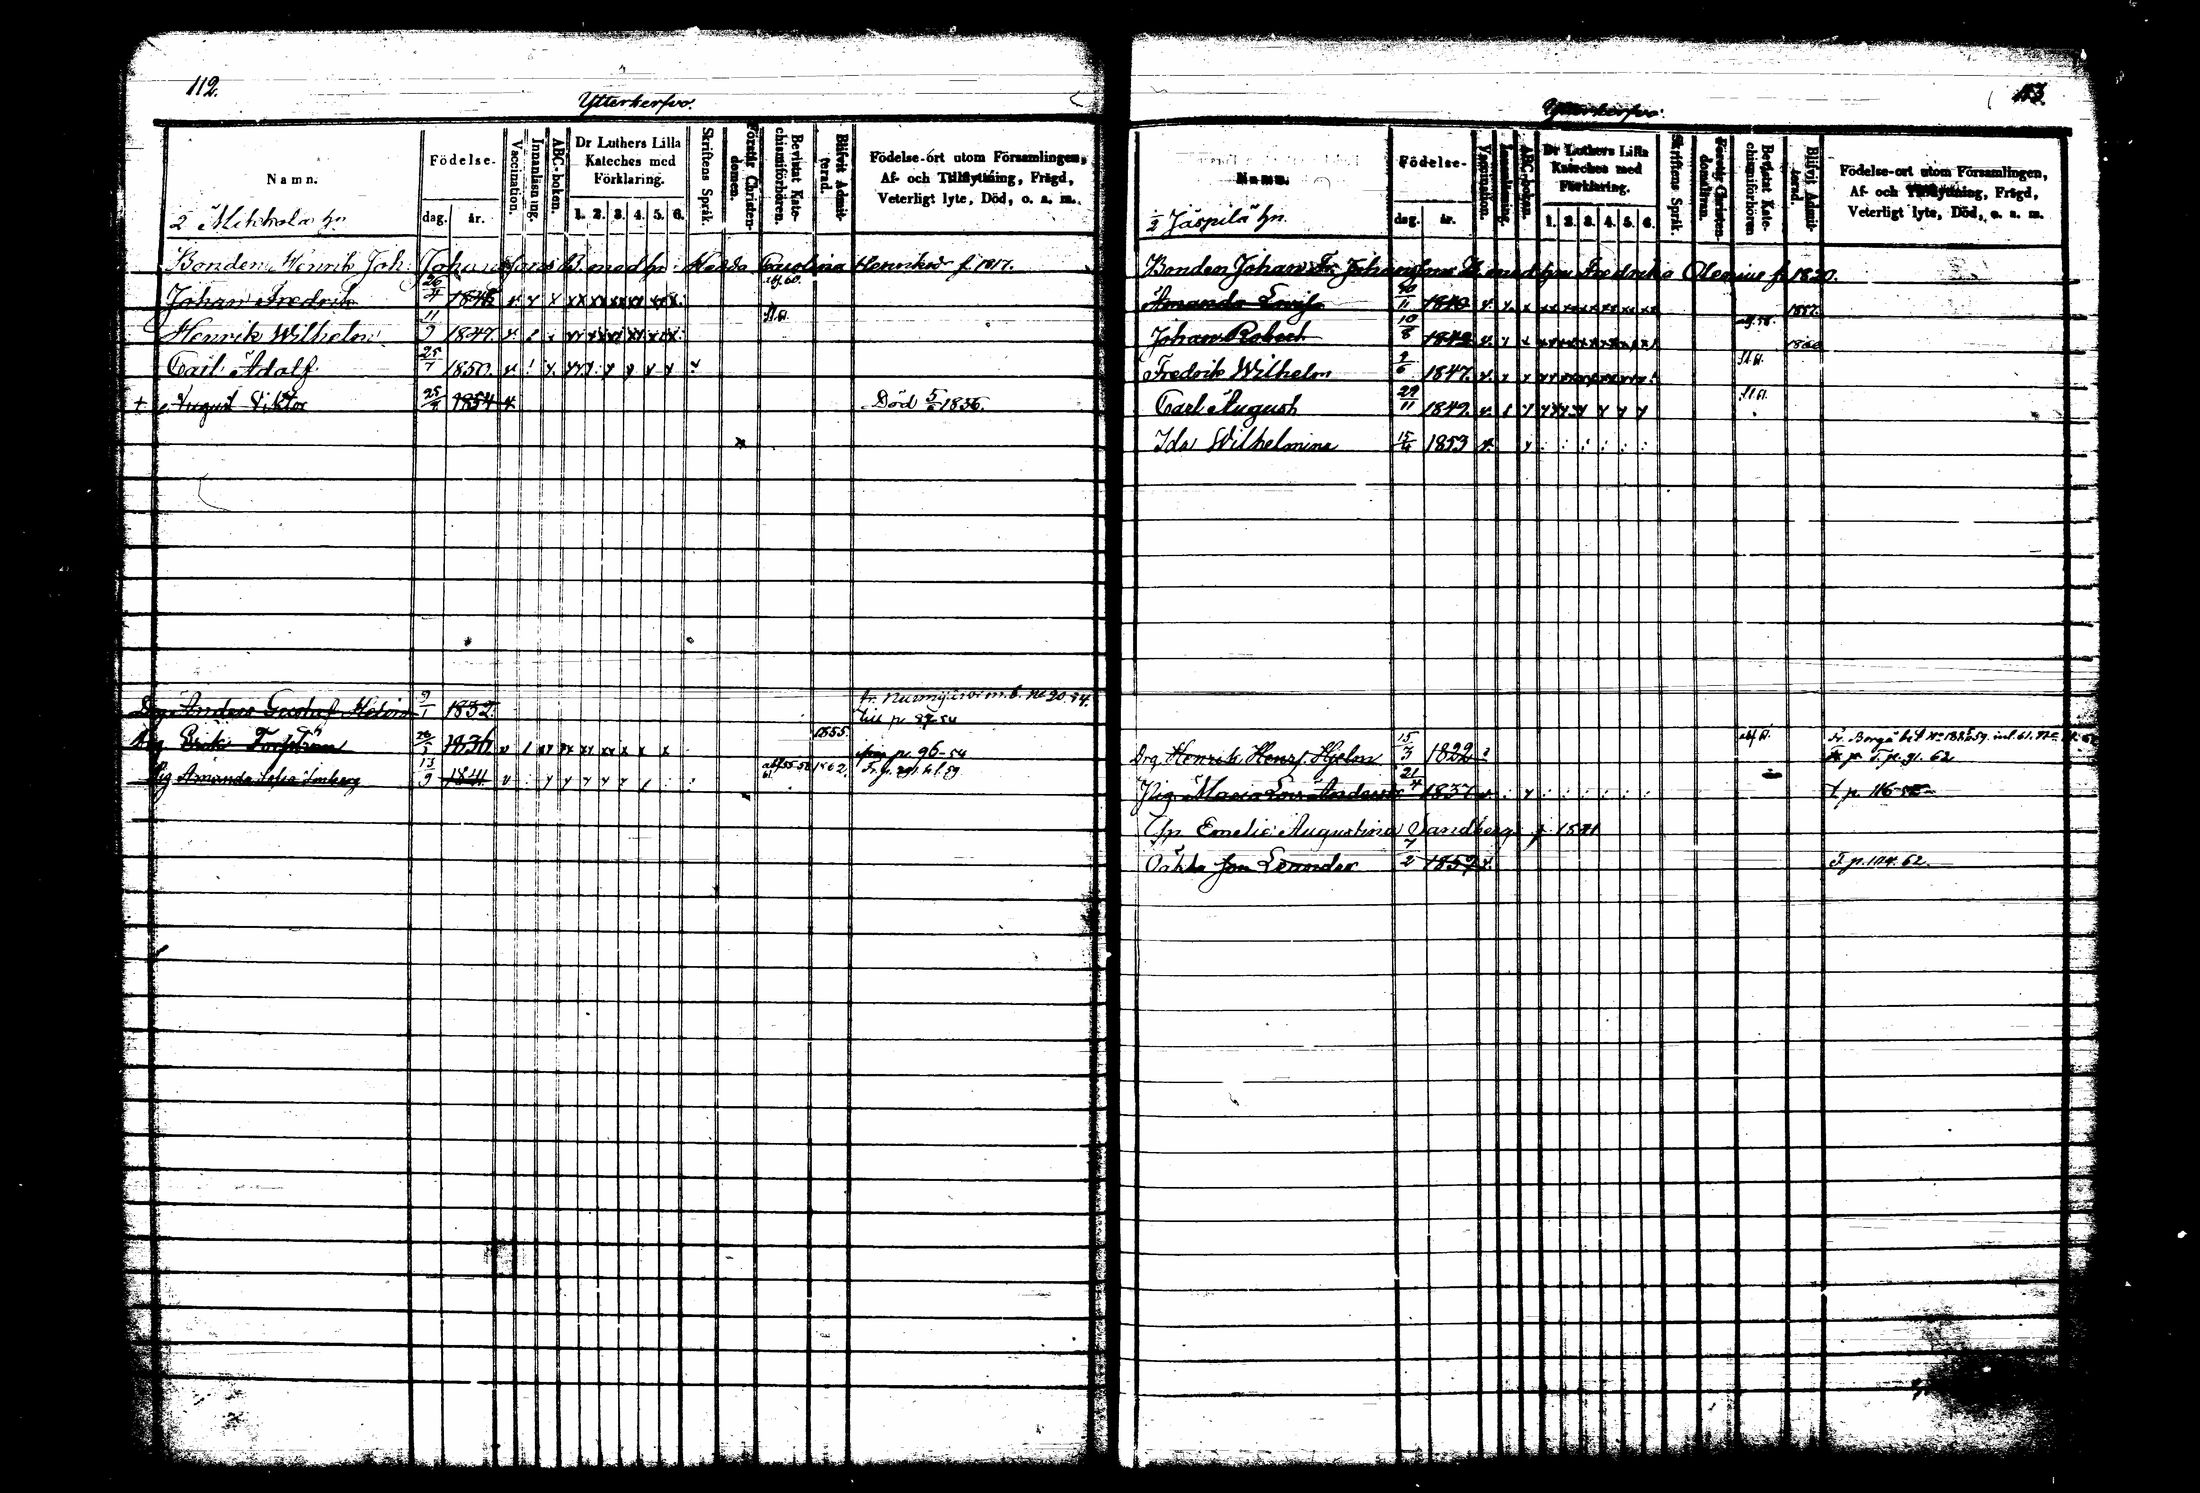 112.
Ytterkerfvo.
Namn.
Födelse-
dag. år.
Vaccination.
Innanläsning.
ABC-boken.
Dr Luthers Lilla
Kateches med
Förklaring.
1. 2. 3. 4. 5. 6.
Skriftens Språk.
Förstår Christen-
domen.
Bevistat Kate-
chismiförhören.
Blifvit Admit-
terad.
Födelse-ort utom Församlingen,
Af- och Tillflyttning, Frägd,
Veterligt lyte, Död, o. s. m.
2 Mikkola hn
Bonden Henrik Joh: Johansons B. med hu: Carolina Henriksd f. 1817.
Johan Fredrik 26/4 1845
Henrik Wilhelm 11/9 1847.
Carl Adolf 25/7 1850.
+ August Viktor 25/9 1854 Död 5/6 1856.
Drg Anders Gustaf 9/1 1832. fr. Nurmijärvi m.b. No 20.54.
till p 87-54
Drg Erik Forsström 26/5 1836 1855. p. 96-54
Pig Amanda Sofia 13/9 1841 1862.
113.
Ytterkerfvo.
Namn.
Födelse-
dag. år.
Vaccination.
Innanläsning.
ABC-boken.
Dr Luthers Lilla
Kateches med
Förklaring.
1. 2. 3. 4. 5. 6.
Skriftens Språk.
Förstår Christen-
domen.
Bevistat Kate-
chismiförhören
Blifvit Admit-
terad.
Födelse-ort utom Församlingen,
Af- och Tillflyttning, Frägd,
Veterligt lyte, Död, o. s. m.
1/2 Jäspilä hn.
Bonden Johan Fr. Johansons B. med hu Fredrika Alenius f. 1820.
Amanda Lovisa 1840 1857.
Johan Robert 10/8 1842
Fredrik Wilhelm 9/6 1847.
Carl August 29/11 1849.
Ida Wilhelmina 15/4 1853
Drg Henrik Henrs. Hjelm 15/3 1822 Fr. Borgå
T. p. 91. 62
Pig Maria Lov: Andersd 21/4 1837 t. p. 116-58
Emelie Augustina Sandberg f. 1841
Oäkta son Leander 7/2 1859 T. p. 124. 62.